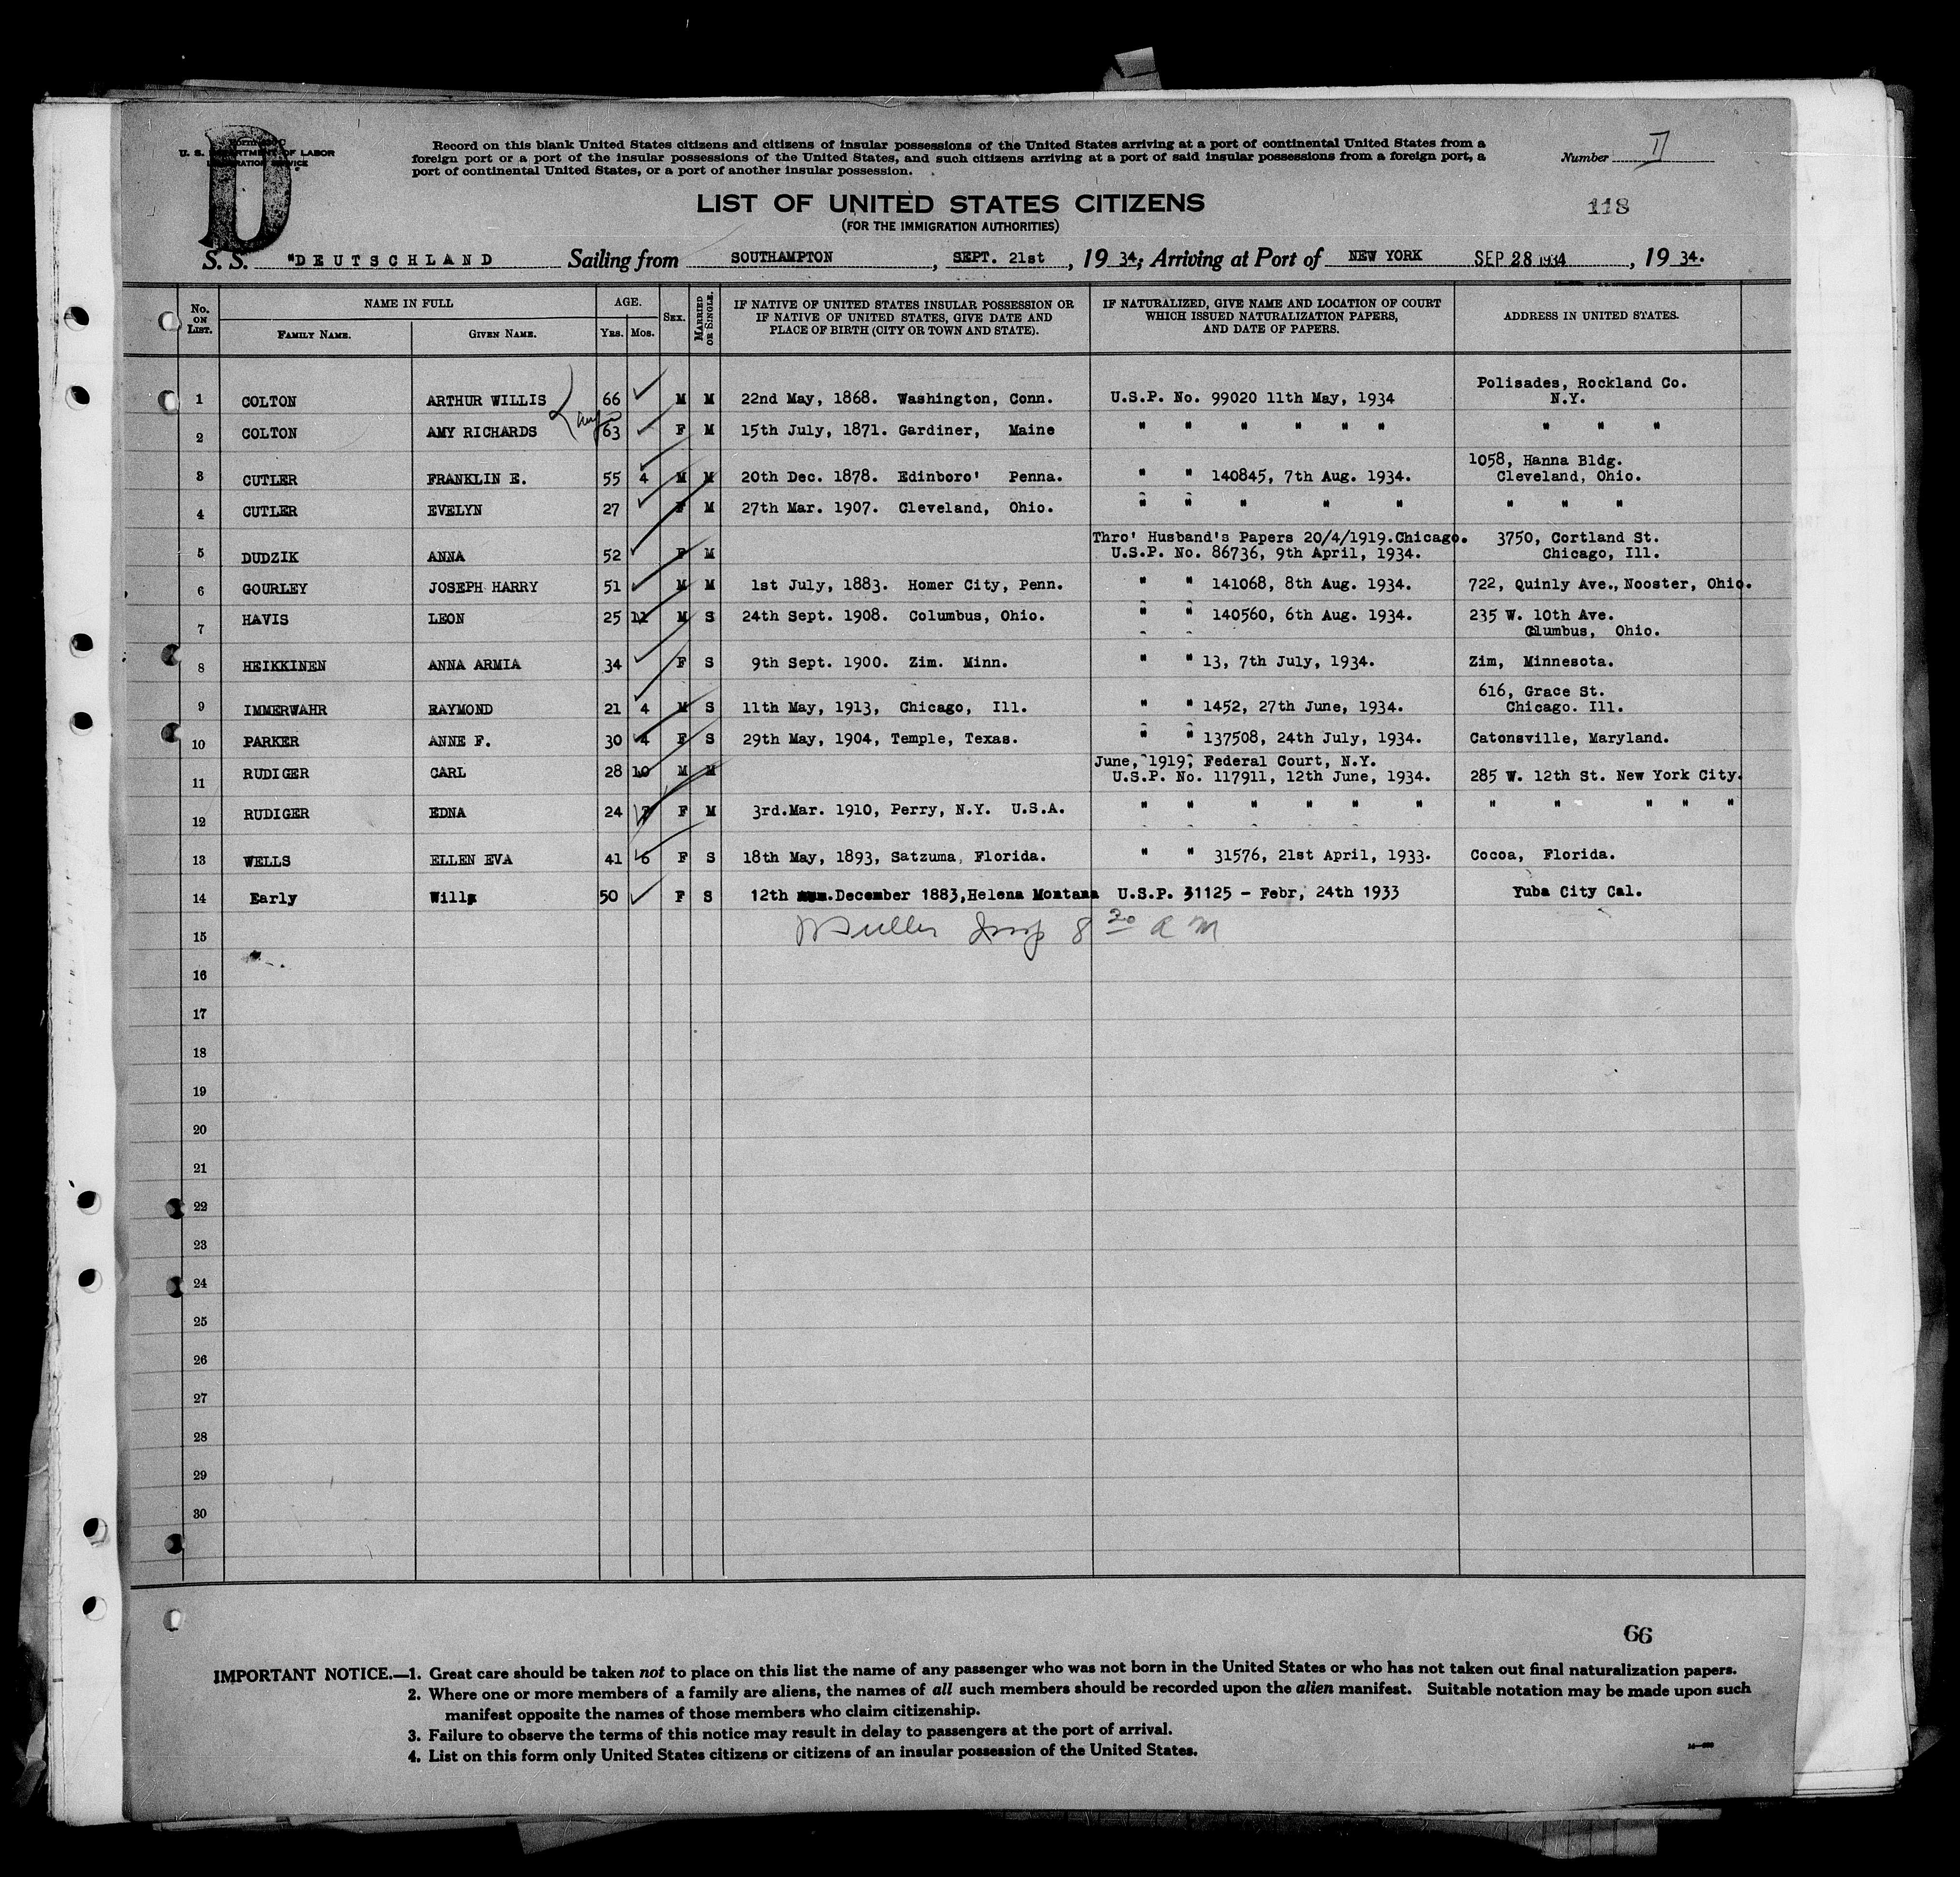 D
U. S. DEPARTMENT OF LABOR
IMMIGRATION SERVICE
Record on this blank United States citizens and citizens of insular possessions of the United States arriving at a port of continental United States from a
foreign port or a port of the insular possessions of the United States, and such citizens arriving at a port of said insular possessions from a foreign port, a
port of continental United States, or a port of another insular possession.
Number
118
LIST OF UNITED STATES CITIZENS
(FOR THE IMMIGRATION AUTHORITIES)
S. S. "DEUTSCHLAND Sailing from SOUTHAMPTON, SEPT. 21st, 19 34; Arriving at Port of NEW YORK SEP 28 1934, 19 34.
No. ON LIST. NAME IN FULL FAMILY NAME. GIVEN NAME. AGE. YRS. MOS. SEX. MARRIED OR SINGLE. IF NATIVE OF UNITED STATES INSULAR POSSESSION OR IF NATIVE OF UNITED STATES, GIVE DATE AND PLACE OF BIRTH (CITY OR TOWN AND STATE). IF NATURALIZED, GIVE NAME AND LOCATION OF COURT WHICH ISSUED NATURALIZATION PAPERS, AND DATE OF PAPERS. ADDRESS IN UNITED STATES.
1 COLTON ARTHUR WILLIS 66 M M 22nd May, 1868. Washington, Conn. U.S.P. No. 99020 11th May, 1934 Polisades, Rockland Co. N.Y.
2 COLTON AMY RICHARDS 63 F M 15th July, 1871. Gardiner, Maine " " " " " " " " "
3 CUTLER FRANKLIN E. 55 4 M M 20th Dec. 1878. Edinboro' Penna. " " 140845, 7th Aug. 1934. 1058, Hanna Bldg. Cleveland, Ohio.
4 CUTLER EVELYN 27 F M 27th Mar. 1907. Cleveland, Ohio. " " " " " " " "
5 DUDZIK ANNA 52 F M Thro' Husband's Papers 20/4/1919.Chicago. U.S.P. No. 86736, 9th April, 1934. 3750, Cortland St. Chicago, Ill.
6 GOURLEY JOSEPH HARRY 51 M M 1st July, 1883. Homer City, Penn. " " 141068, 8th Aug. 1934. 722, Quinly Ave., Nooster, Ohio.
7 HAVIS LEON 25 11 M S 24th Sept. 1908. Columbus, Ohio. " " 140560, 6th Aug. 1934. 235 W. 10th Ave. Clumbus, Ohio.
8 HEIKKINEN ANNA ARMIA 34 F S 9th Sept. 1900. Zim. Minn. " " 13, 7th July, 1934. Zim, Minnesota.
9 IMMERWAHR RAYMOND 21 4 M S 11th May, 1913, Chicago, Ill. " " 1452, 27th June, 1934. 616, Grace St. Chicago. Ill.
10 PARKER ANNE F. 30 4 F S 29th May, 1904, Temple, Texas. " " 137508, 24th July, 1934. Catonsville, Maryland.
11 RUDIGER CARL 28 10 M M June, 1919, Federal Court, N.Y. U.S.P. No. 117911, 12th June, 1934. 285 W. 12th St. New York City.
12 RUDIGER EDNA 24 7 F M 3rd.Mar. 1910, Perry, N.Y. U.S.A. " " " " " " " " " " "
13 WELLS ELLEN EVA 41 6 F S 18th May, 1893, Satzuma, Florida. " " 31576, 21st April, 1933. Cocoa, Florida.
14 Early Willa 50 F S 12th December 1883,Helena Montana U.S.P. 31125 - Febr, 24th 1933 Yuba City Cal.
15 Insp 8 30 A M
16
17
18
19
20
21
22
23
24
25
26
27
28
29
30
66
IMPORTANT NOTICE.—1. Great care should be taken not to place on this list the name of any passenger who was not born in the United States or who has not taken out final naturalization papers.
2. Where one or more members of a family are aliens, the names of all such members should be recorded upon the alien manifest. Suitable notation may be made upon such
manifest opposite the names of those members who claim citizenship.
3. Failure to observe the terms of this notice may result in delay to passengers at the port of arrival.
4. List on this form only United States citizens or citizens of an insular possession of the United States.